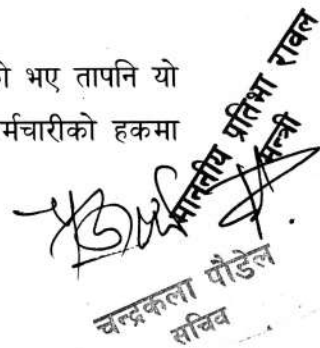 भए तापनि यो
र्मचारीको हकमा
माननीय प्रतिभा रावल
मन्त्री
चन्द्रकला पौडेल
सचिव